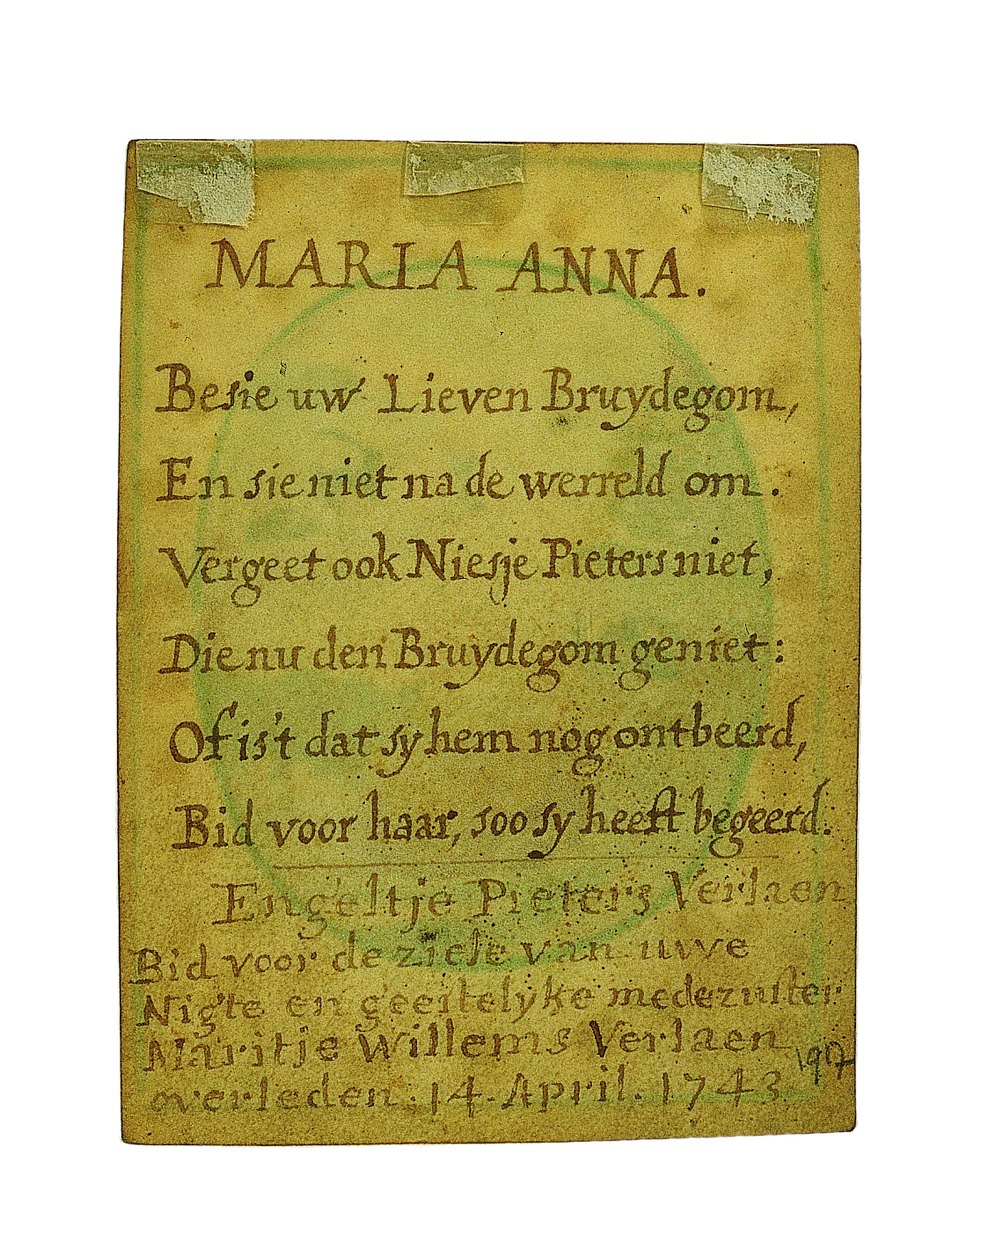 MARIA ANNA.
Besie uw Lieven Bruydegom,
En sie niet na de werreld om.
Vergeet ook Niesje Pieters niet,
Die nu den Bruydegom geniet:
Of is't dat sy hem nog ontbeerd,
Bid voor haar, soo sy heeft begeerd:
Engeltje Pieters Verlaen
Bid voor de ziele van uwe
Nigte en geestelyke medezuster
Maritje Willems Verlaen
overleden. 14. April. 1743.